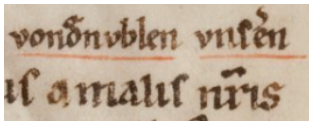 von dͤn vblen vnſēn
us a malis nr̄is